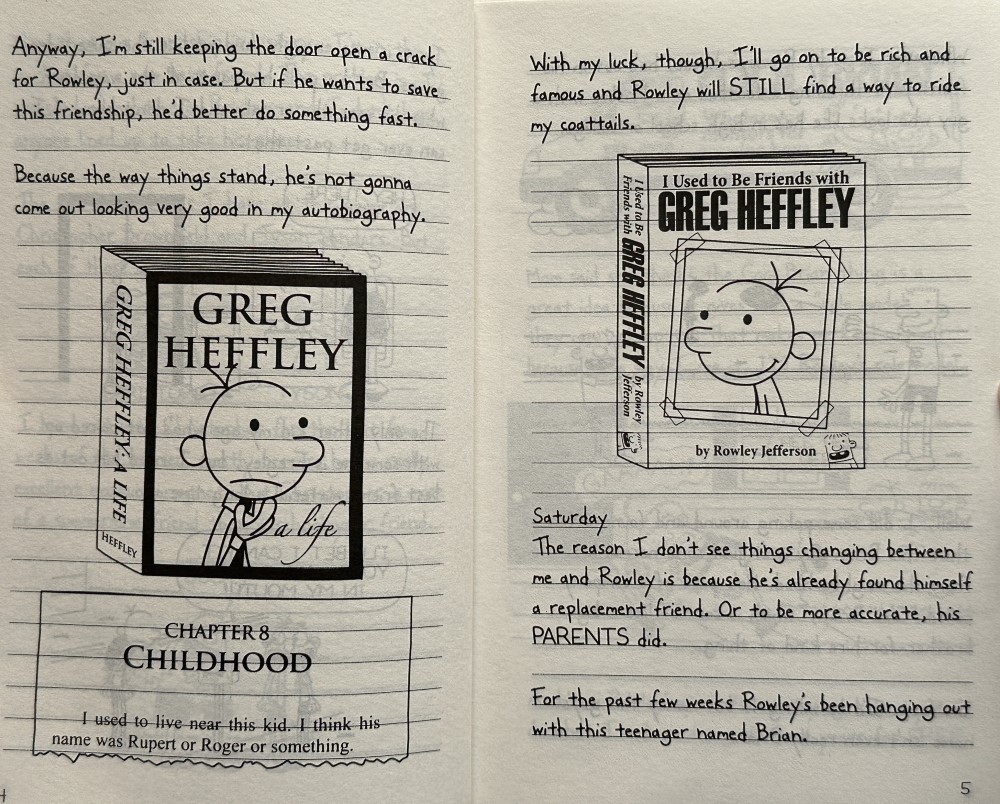 Anyway, I'm still keeping the door open a crack
for Rowley, just in case. But if he wants to save
this friendship, he'd better do something fast.
Because the way things stand, he's not gonna
come out looking very good in my autobiography.
GREG HEFFLEY: A LIFE
HEFFLEY
GREG
HEFFLEY
a life
CHAPTER 8
CHILDHOOD
I used to live near this kid. I think his
name was Rupert or Roger or something.
4
With my luck, though, I'll go on to be rich and
famous and Rowley will STILL find a way to ride
my coattails.
I Used to Be
Friends with
GREG HEFFLEY
by Rowley
Jefferson
I Used to Be Friends with
GREG HEFFLEY
by Rowley Jefferson
Saturday
The reason I don't see things changing between
me and Rowley is because he's already found himself
a replacement friend. Or to be more accurate, his
PARENTS did.
For the past few weeks Rowley's been hanging out
with this teenager named Brian.
5